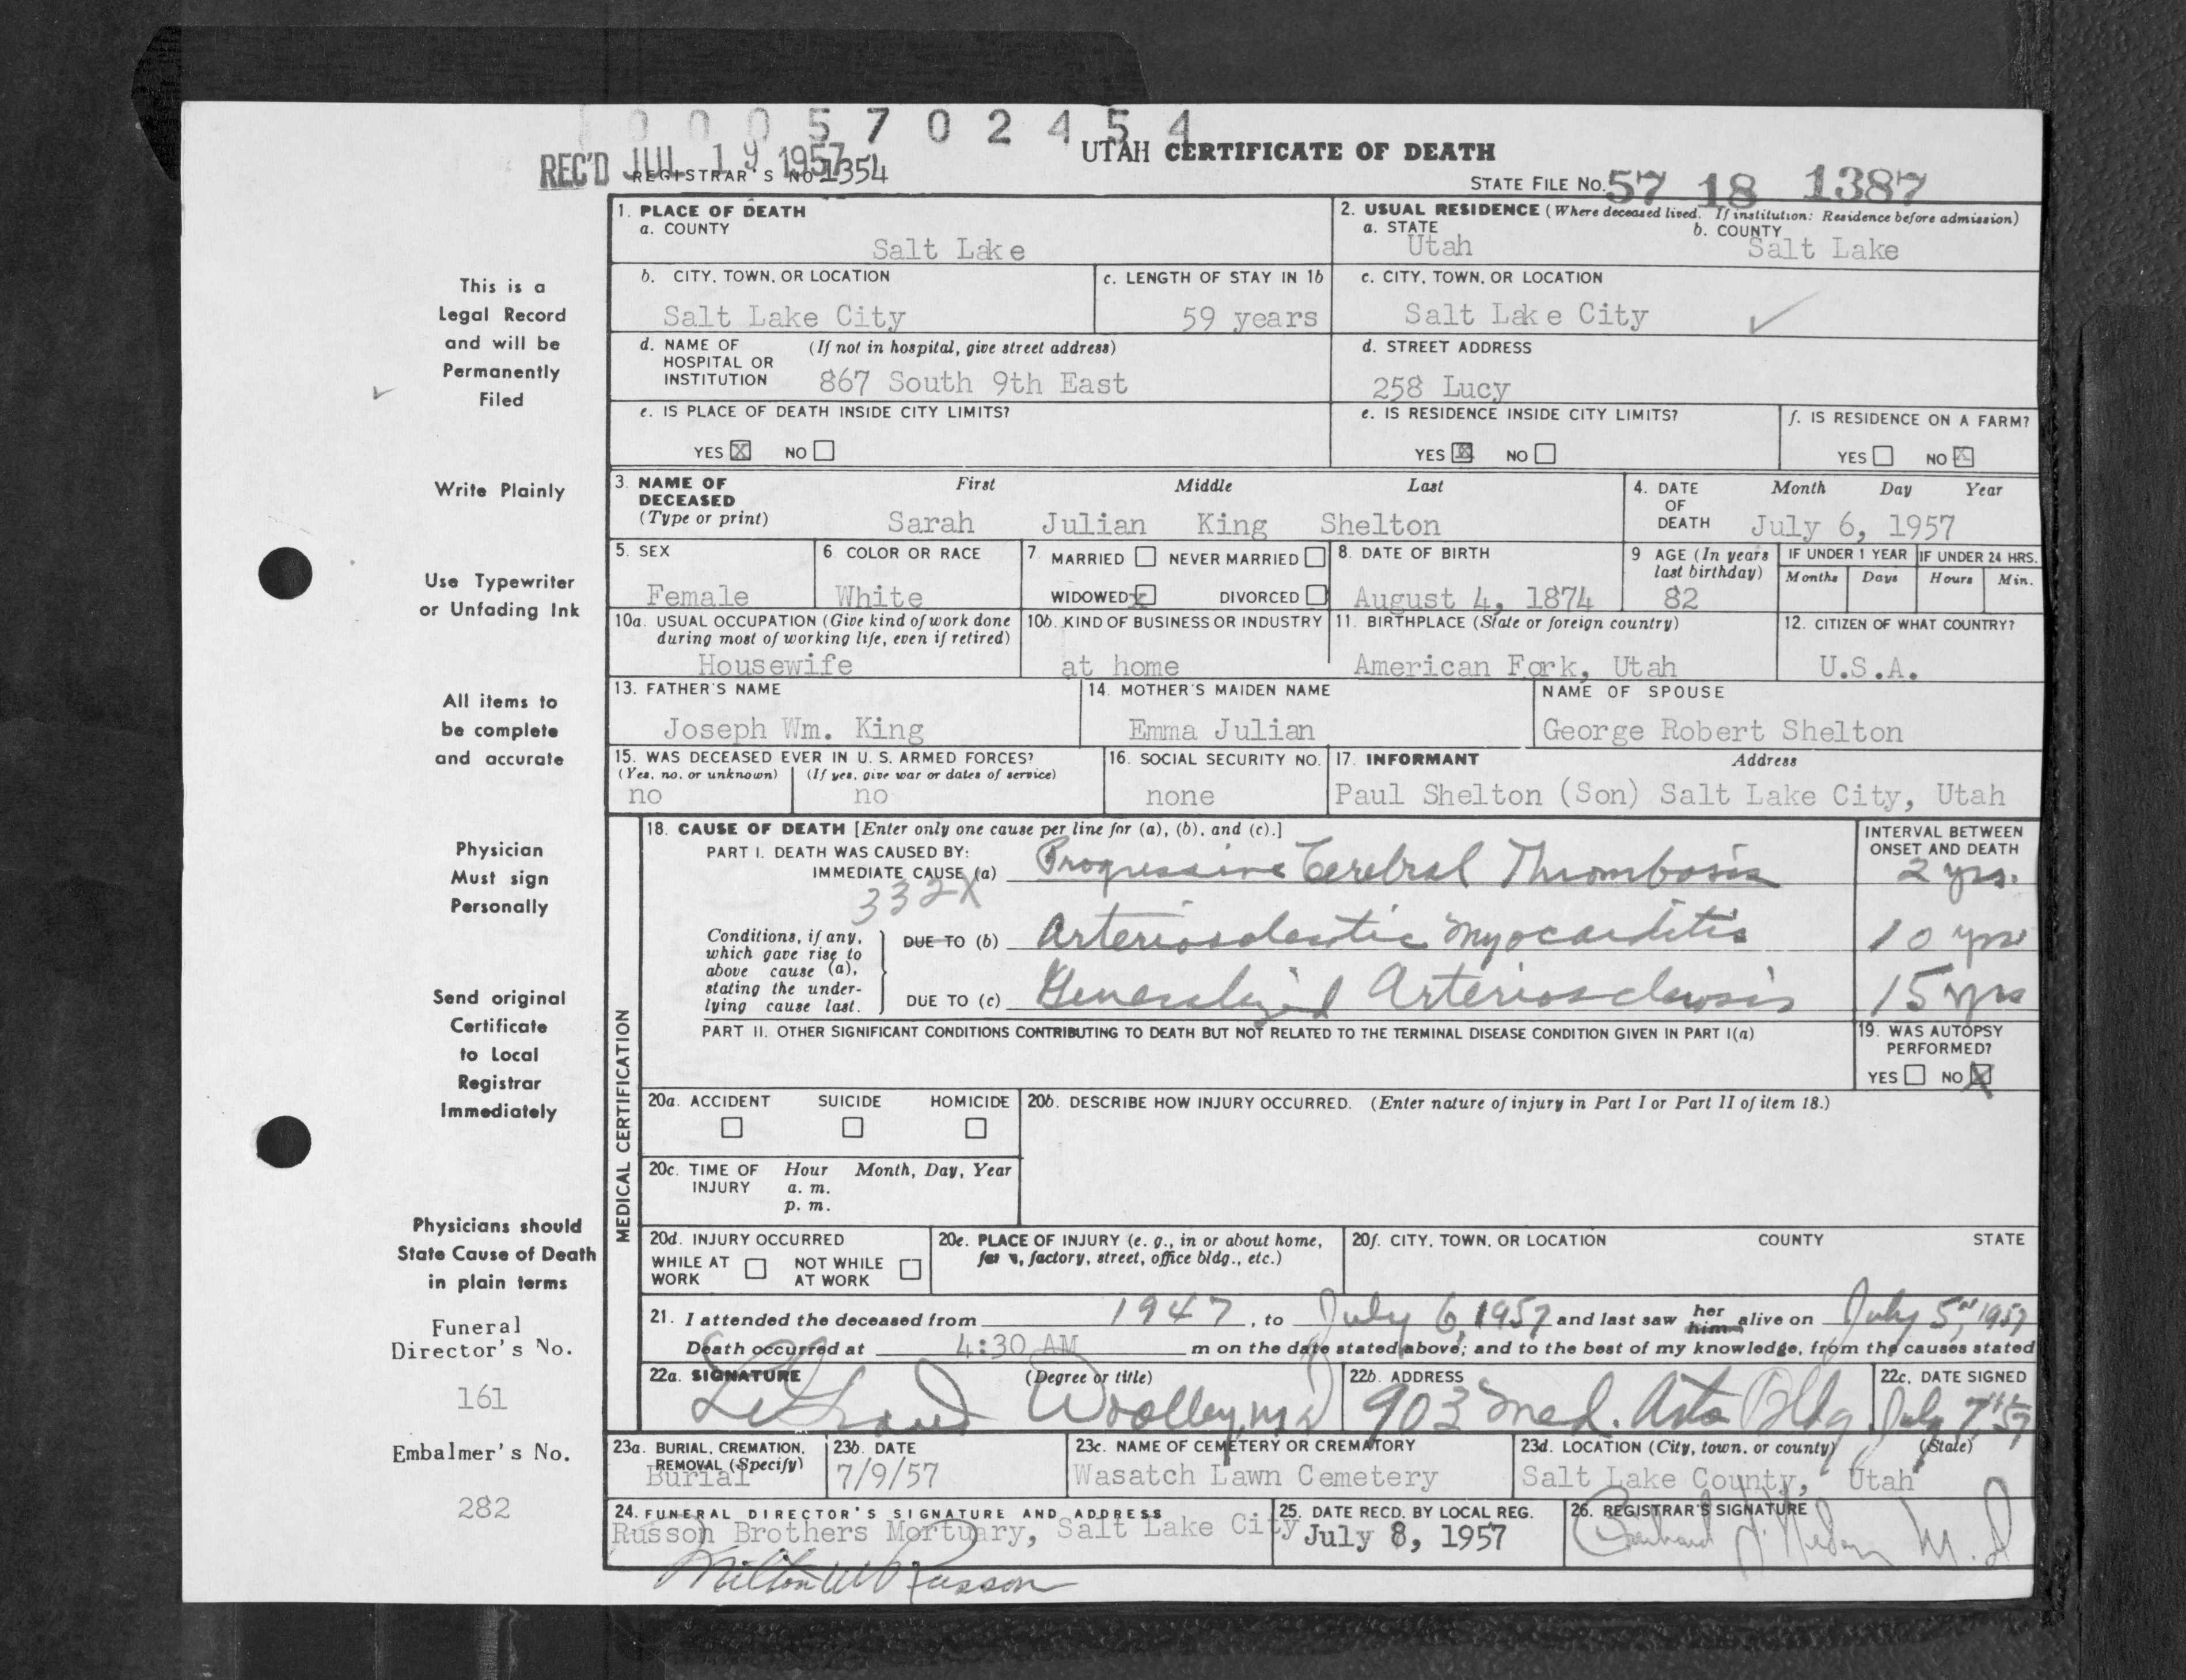 0 0 0 5 7 0 2 4 5 4
UTAH CERTIFICATE OF DEATH
REC'D JUL 19 1957
REGISTRAR'S NO 1354
STATE FILE NO. 57 18 1387
1. PLACE OF DEATH
a. COUNTY
Salt Lake
2. USUAL RESIDENCE (Where deceased lived. If institution: Residence before admission)
a. STATE
Utah
b. COUNTY
Salt Lake
b. CITY, TOWN, OR LOCATION
Salt Lake City
c. LENGTH OF STAY IN 1b
59 years
c. CITY, TOWN, OR LOCATION
Salt Lake City
d. NAME OF (If not in hospital, give street address)
HOSPITAL OR
INSTITUTION 867 South 9th East
d. STREET ADDRESS
258 Lucy
e. IS PLACE OF DEATH INSIDE CITY LIMITS?
YES X NO
e. IS RESIDENCE INSIDE CITY LIMITS?
YES X NO
f. IS RESIDENCE ON A FARM?
YES NO X
3. NAME OF DECEASED
(Type or print)
First Middle Last
Sarah Julian King Shelton
4. DATE OF DEATH
Month Day Year
July 6, 1957
5. SEX
Female
6. COLOR OR RACE
White
7. MARRIED NEVER MARRIED
WIDOWED X DIVORCED
8. DATE OF BIRTH
August 4, 1874
9 AGE (In years
last birthday)
82
IF UNDER 1 YEAR
Months Days
IF UNDER 24 HRS.
Hours Min.
10a. USUAL OCCUPATION (Give kind of work done
during most of working life, even if retired)
Housewife
10b. KIND OF BUSINESS OR INDUSTRY
at home
11. BIRTHPLACE (State or foreign country)
American Fork, Utah
12. CITIZEN OF WHAT COUNTRY?
U.S.A.
13. FATHER'S NAME
Joseph Wm. King
14. MOTHER'S MAIDEN NAME
Emma Julian
NAME OF SPOUSE
George Robert Shelton
15. WAS DECEASED EVER IN U. S. ARMED FORCES?
(Yes, no, or unknown) (If yes, give war or dates of service)
no no
16. SOCIAL SECURITY NO.
none
17. INFORMANT Address
Paul Shelton (Son) Salt Lake City, Utah
MEDICAL CERTIFICATION
18. CAUSE OF DEATH [Enter only one cause per line for (a), (b), and (c).]
PART I. DEATH WAS CAUSED BY:
IMMEDIATE CAUSE (a) Progressive Cerebral Thrombosis
332X
INTERVAL BETWEEN
ONSET AND DEATH
2 yrs.
Conditions, if any,
which gave rise to
above cause (a),
stating the under-
lying cause last.
DUE TO (b) Arteriosclerotic Myocarditis
10 yrs
DUE TO (c) Generalized Arteriosclerosis
15 yrs
PART II. OTHER SIGNIFICANT CONDITIONS CONTRIBUTING TO DEATH BUT NOT RELATED TO THE TERMINAL DISEASE CONDITION GIVEN IN PART I(a)
19. WAS AUTOPSY
PERFORMED?
YES NO X
20a. ACCIDENT SUICIDE HOMICIDE
20b. DESCRIBE HOW INJURY OCCURRED. (Enter nature of injury in Part I or Part II of item 18.)
20c. TIME OF INJURY
Hour Month, Day, Year
a. m.
p. m.
20d. INJURY OCCURRED
WHILE AT WORK NOT WHILE AT WORK
20e. PLACE OF INJURY (e. g., in or about home,
factory, street, office bldg., etc.)
20f. CITY, TOWN, OR LOCATION COUNTY STATE
21. I attended the deceased from 1947, to July 6, 1957 and last saw her him alive on July 5th, 1957
Death occurred at 4:30 AM m on the date stated above; and to the best of my knowledge, from the causes stated
22a. SIGNATURE (Degree or title)
LeGrand Woolley, MD
22b. ADDRESS
903 Med. Arts Bldg.
22c. DATE SIGNED
July 7th 57
23a. BURIAL, CREMATION,
REMOVAL (Specify)
Burial
23b. DATE
7/9/57
23c. NAME OF CEMETERY OR CREMATORY
Wasatch Lawn Cemetery
23d. LOCATION (City, town, or county) (State)
Salt Lake County, Utah
24. FUNERAL DIRECTOR'S SIGNATURE AND ADDRESS
Russon Brothers Mortuary, Salt Lake City
Milton W Russon
25. DATE RECD. BY LOCAL REG.
July 8, 1957
26. REGISTRAR'S SIGNATURE
M. D
This is a
Legal Record
and will be
Permanently
Filed
Write Plainly
Use Typewriter
or Unfading Ink
All items to
be complete
and accurate
Physician
Must sign
Personally
Send original
Certificate
to Local
Registrar
Immediately
Physicians should
State Cause of Death
in plain terms
Funeral
Director's No.
161
Embalmer's No.
282